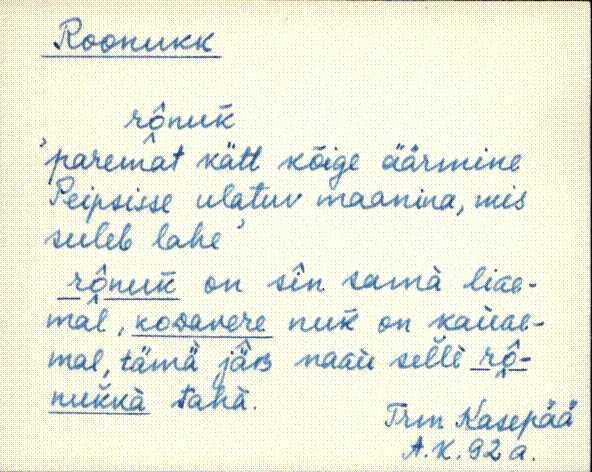 Roonukk
rô̭nuk̄
'paremat kätt kõige äärmine
Peipsisse ulatuv maanina, mis
suleb lahe'
rô̭nuk̄ on sîn samà liǝe-
mâl, koᴅavere nuk̄ on kaùǝe-
mal, tämä̀ jä̂ʙ naàu sellì rô̭-
nuk̄kà tahà.
Trm Kasepää
A.K. 92 a.